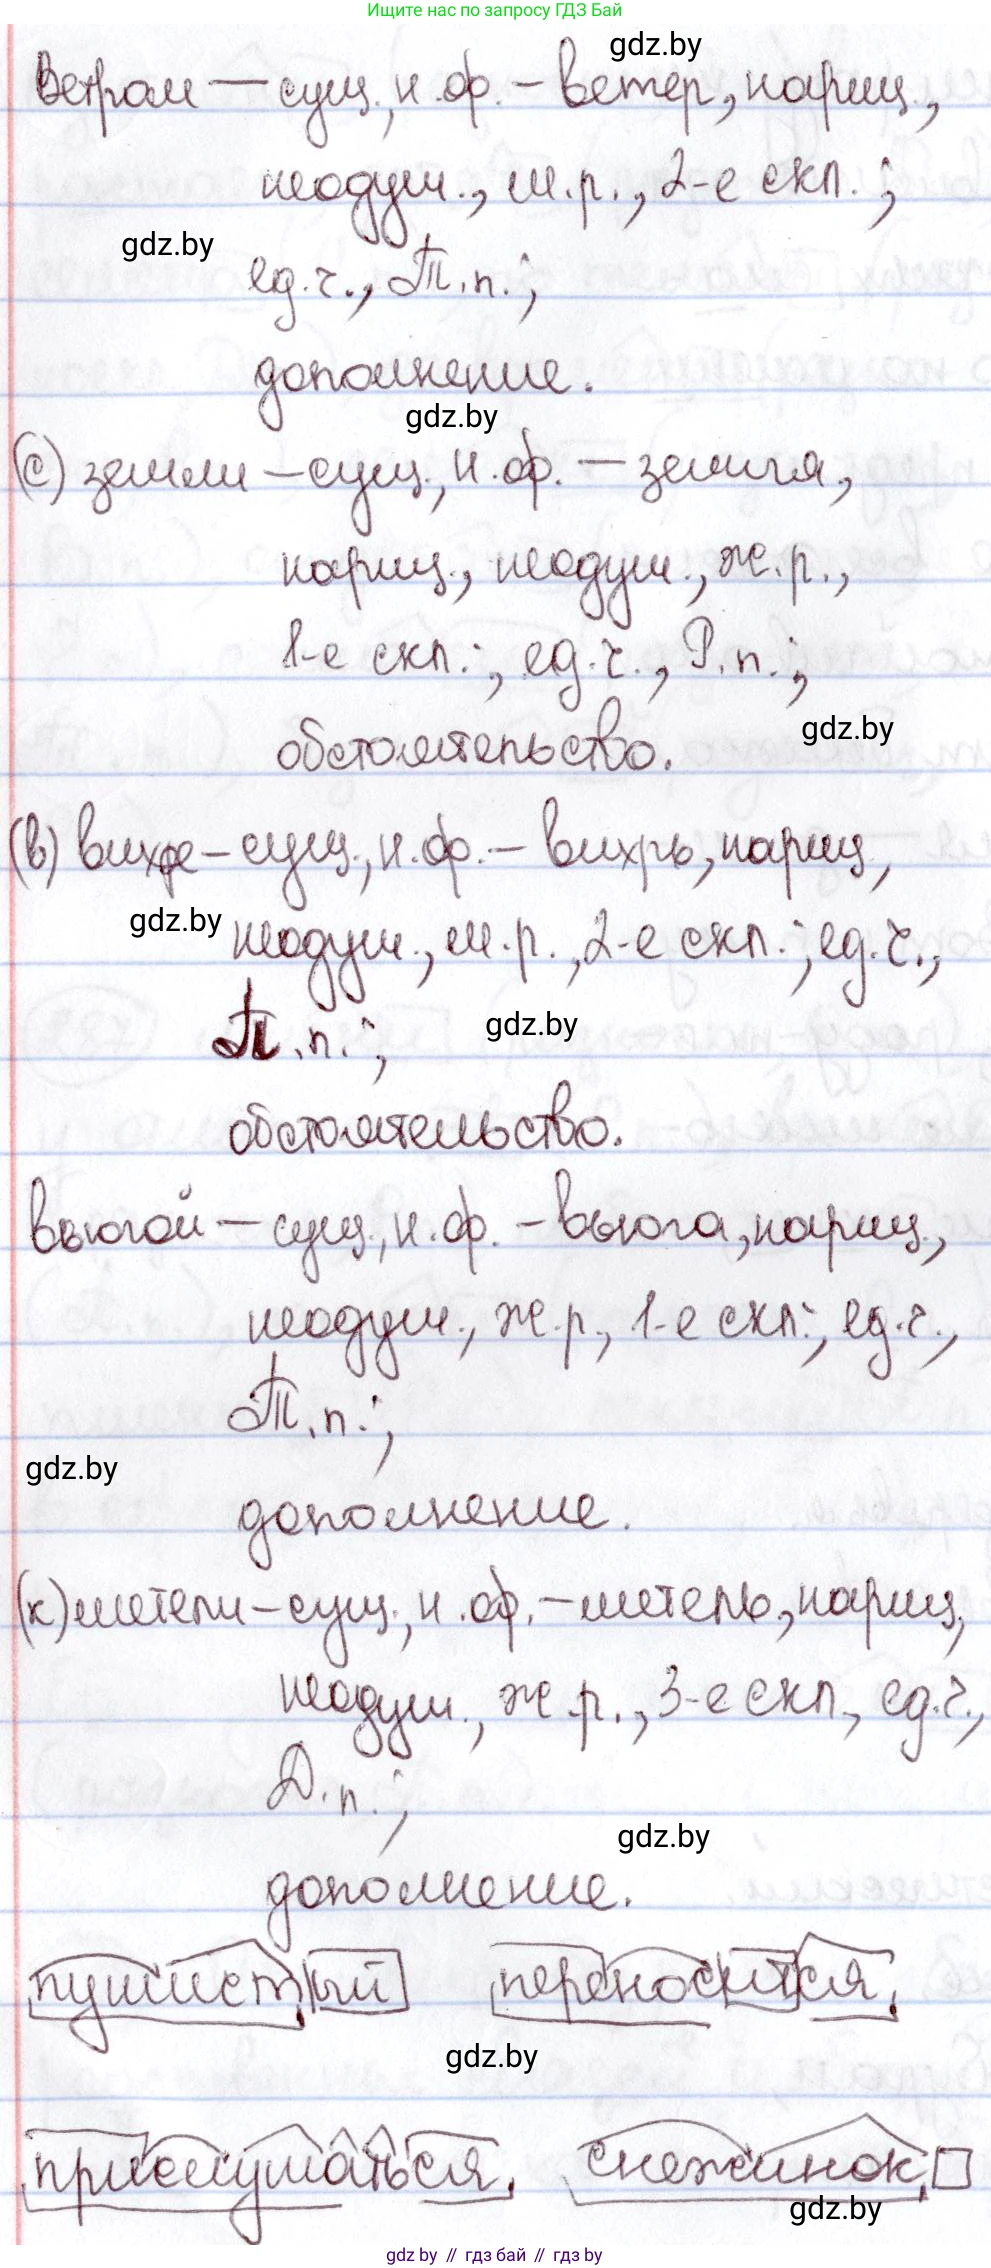 Ищите нас по запросу ГДЗ Бай
gdz.by
Ветром — сущ., н.ф. – ветер, нариц.,
неодуш., м.р., 2-е скл.;
gdz.by
ед.ч., Т.п.;
дополнение.
gdz.by
(с) земли – сущ., н.ф. – земля,
нариц., неодуш., ж.р.,
1-е скл.; ед.ч., Р.п.;
gdz.by
обстоятельство.
(в) вихре – сущ., н.ф. – вихрь, нариц.,
gdz.by
неодуш., м.р., 2-е скл.; ед.ч.,
П.п.;
gdz.by
обстоятельство.
вьюгой – сущ., н.ф. – вьюга, нариц.,
неодуш., ж.р., 1-е скл.; ед.ч.,
Т.п.;
gdz.by
дополнение.
(к) метели – сущ., н.ф. – метель, нариц,
неодуш., ж.р., 3-е скл., ед.ч.,
Д.п.;
gdz.by
дополнение.
пушистый переносится,
gdz.by
прислушаться, снежинок,
gdz.by
gdz.by // гдз бай // гдз by